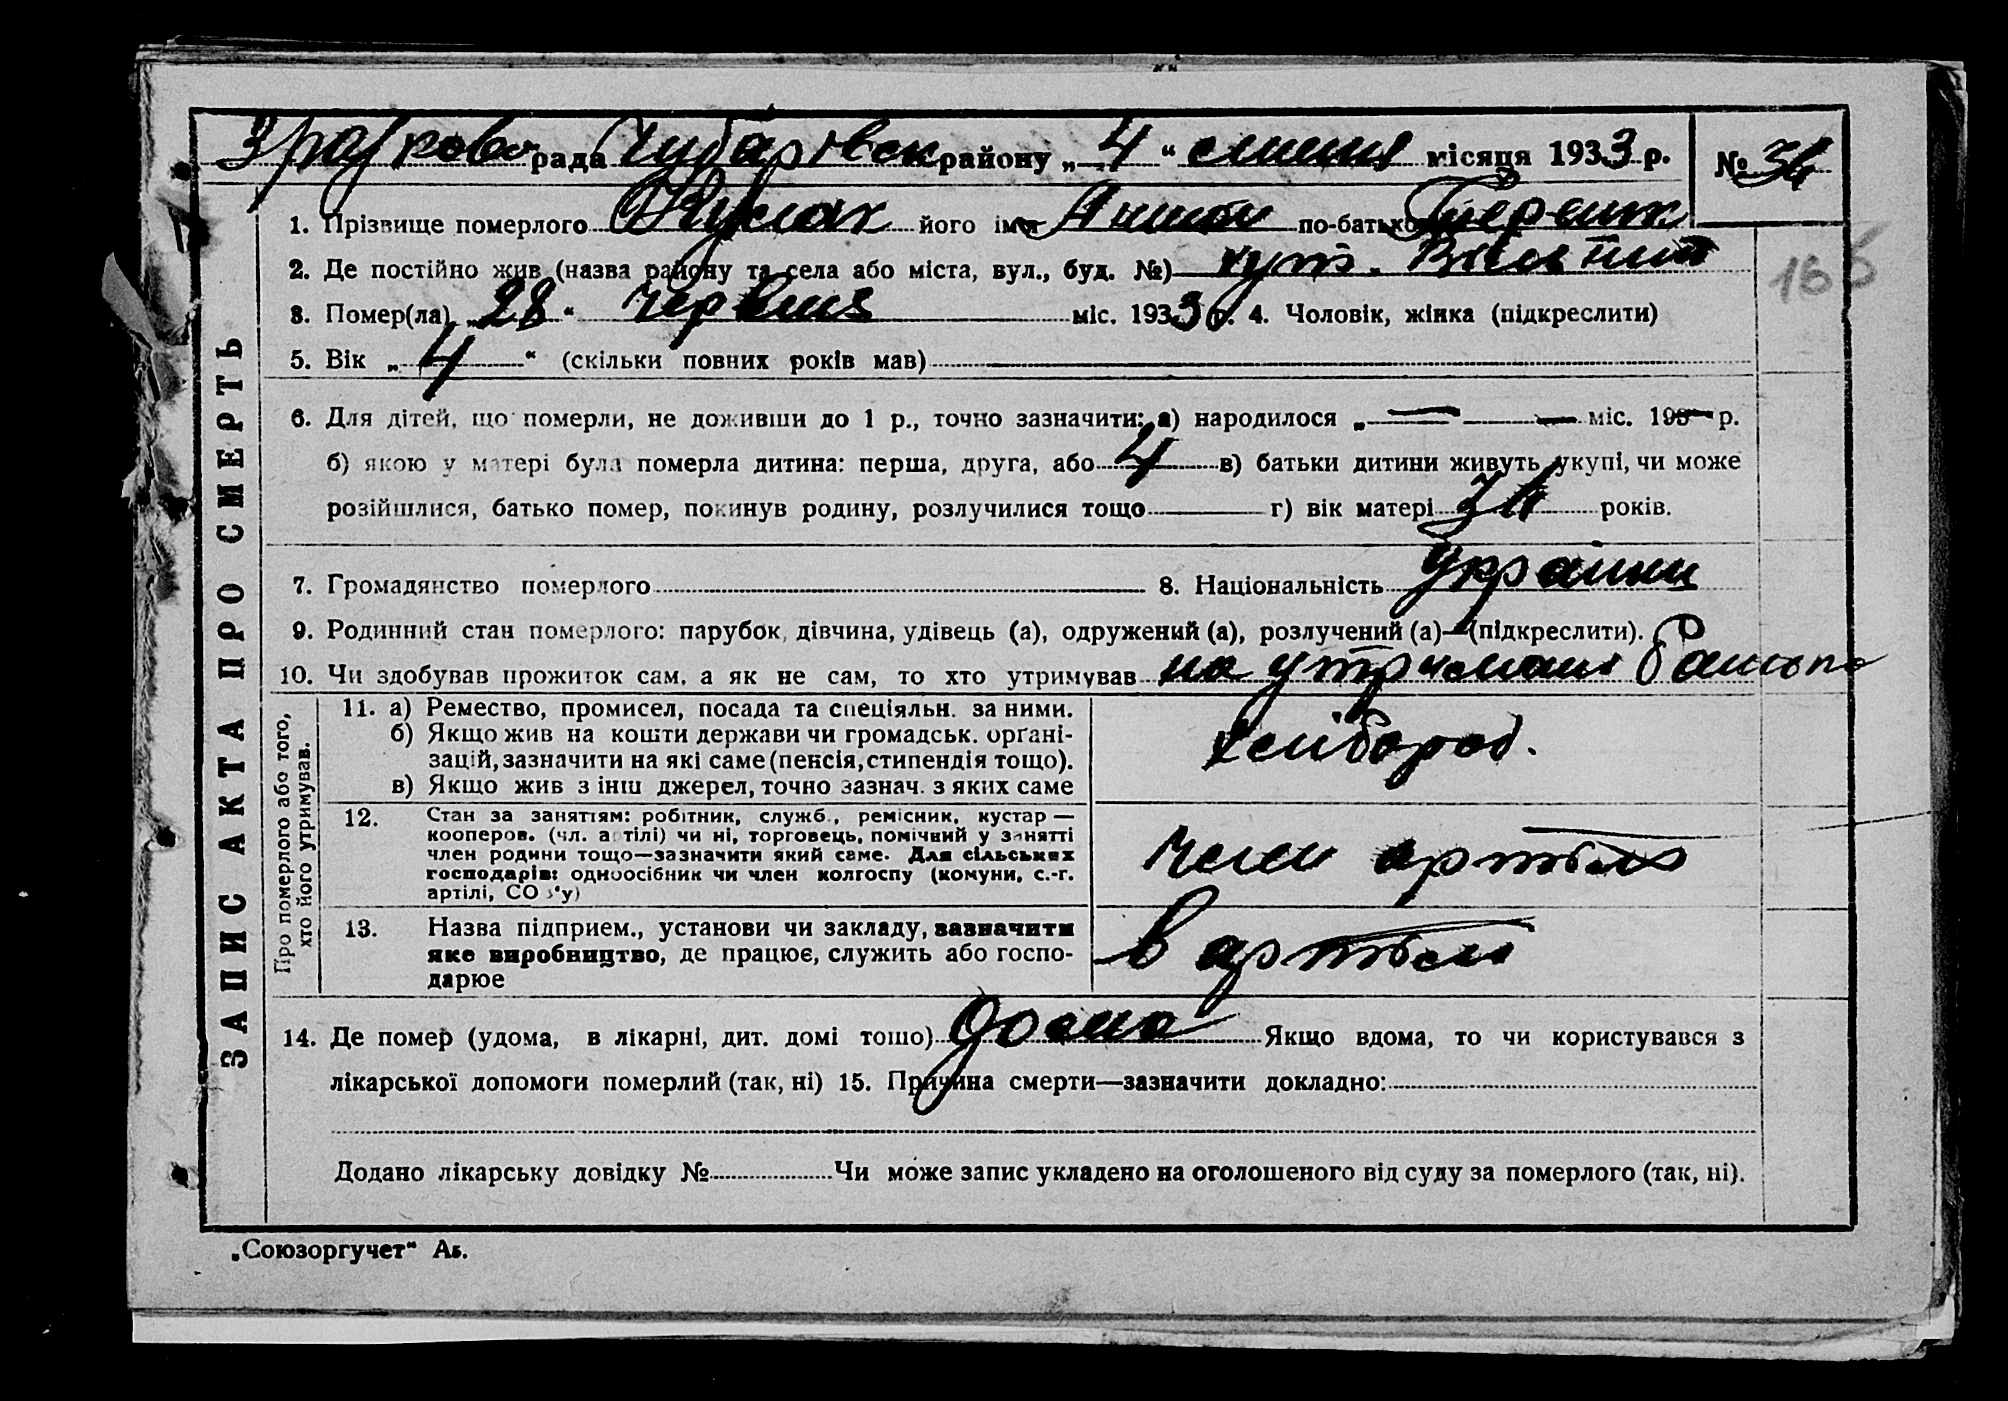 рада Чубарівськ району „ 4 “ липня місяця 1933 р. № 34
1. Прізвище померлого його ім'я по-батькові
2. Де постійно жив (назва району та села або міста, вул., буд. №) хут. Вільний
3. Помер(ла) „ 28 “ червня міс. 1933 р. 4. Чоловік, жінка (підкреслити)
166
5. Вік „ 4 “ (скільки повних років мав)
6. Для дітей, що померли, не доживши до 1 р., точно зазначити: а) народилося „ — — міс. 193 р.
б) якою у матері була померла дитина: перша, друга, або 4 в) батьки дитини живуть укупі, чи може
розійшлися, батько помер, покинув родину, розлучилися тощо г) вік матері 34 років.
7. Громадянство померлого 8. Національність Україниц
9. Родинний стан померлого: парубок, дівчина, удівець (а), одружений (а), розлучений (а)—(підкреслити).
10. Чи здобував прожиток сам, а як не сам, то хто утримував на утриманні
ЗАПИС АКТА ПРО СМЕРТЬ
Про померлого або того,
хто його утримував.
11. а) Ремество, промисел, посада та спеціяльн. за ними.
б) Якщо жив на кошти держави чи громадськ. органі-
зацій, зазначити на які саме (пенсія, стипендія тощо).
в) Якщо жив з інш джерел, точно зазнач. з яких саме
хлібороб.
12. Стан за заняттям: робітник, служб., ремісник, кустар —
кооперов. (чл. артілі) чи ні, торговець, помічний у занятті
член родини тощо—зазначити який саме. Для сільських
господарів: одноосібник чи член колгоспу (комуни, с.-г.
артілі, СО з'у)
член
13. Назва підприєм., установи чи закладу, зазначити
яке виробництво, де працює, служить або госпо-
дарює
в артелі
14. Де помер (удома, в лікарні, дит. домі тощо) дома Якщо вдома, то чи користувався з
лікарської допомоги померлий (так, ні) 15. Причина смерти—зазначити докладно:
Додано лікарську довідку № Чи може запис укладено на оголошеного від суду за померлого (так, ні).
„Союзоргучет“ Ав.